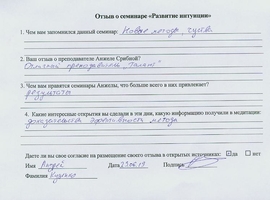 Отзыв о семинаре «Развитие интуиции»
1. Чем вам запомнился данный семинар: Новые методы
2. Ваш отзыв о преподавателе Анжеле Срибной?
Отличный преподаватель
3. Чем вам нравятся семинары Анжелы, что больше всего в них привлекает?
результаты
4. Какие интересные открытия вы сделали в эти дни, какую информацию получили в медитации:
эффективность метода
Даете ли вы свое согласие на размещение своего отзыва в открытых источниках: да нет
Имя Андрей Дата 23.06.19 Подпись
Фамилия